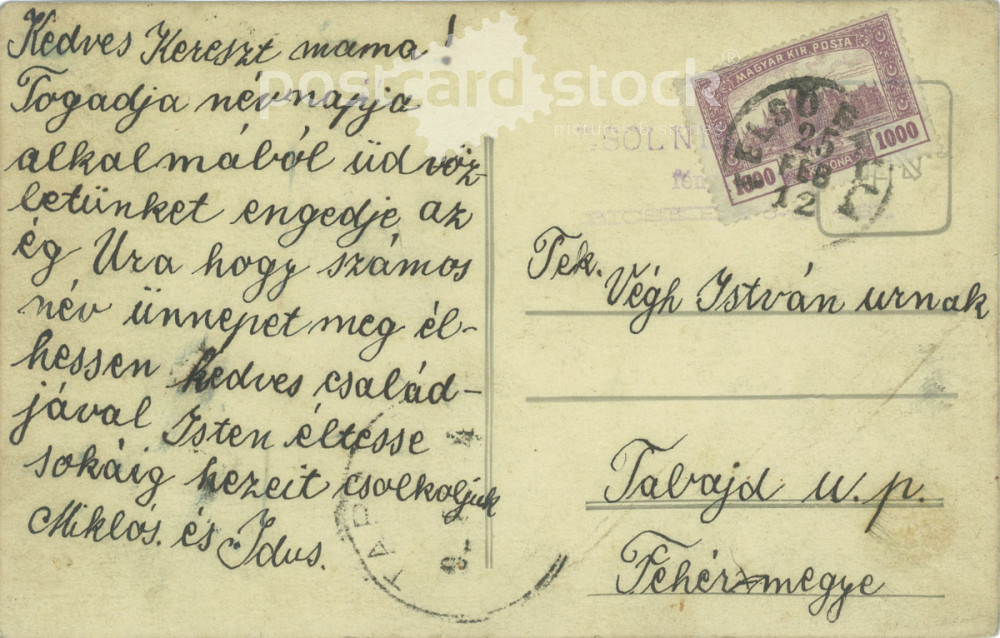 Kedves Kereszt mama!
Togadja névnapja
alkalmából üdvöz-
letünket engedje az
ég Ura hogy számos
név ünnepet meg él-
hessen kedves család-
jával Isten éltesse
sokáig kezeit csolkoljuk
Miklós. és Idus.
postcard stock
MAGYAR KIR. POSTA
1000 KORONA 1000
25
FEB
12
Tek. Végh István urnak
Tabajd u. p.
Fehér megye